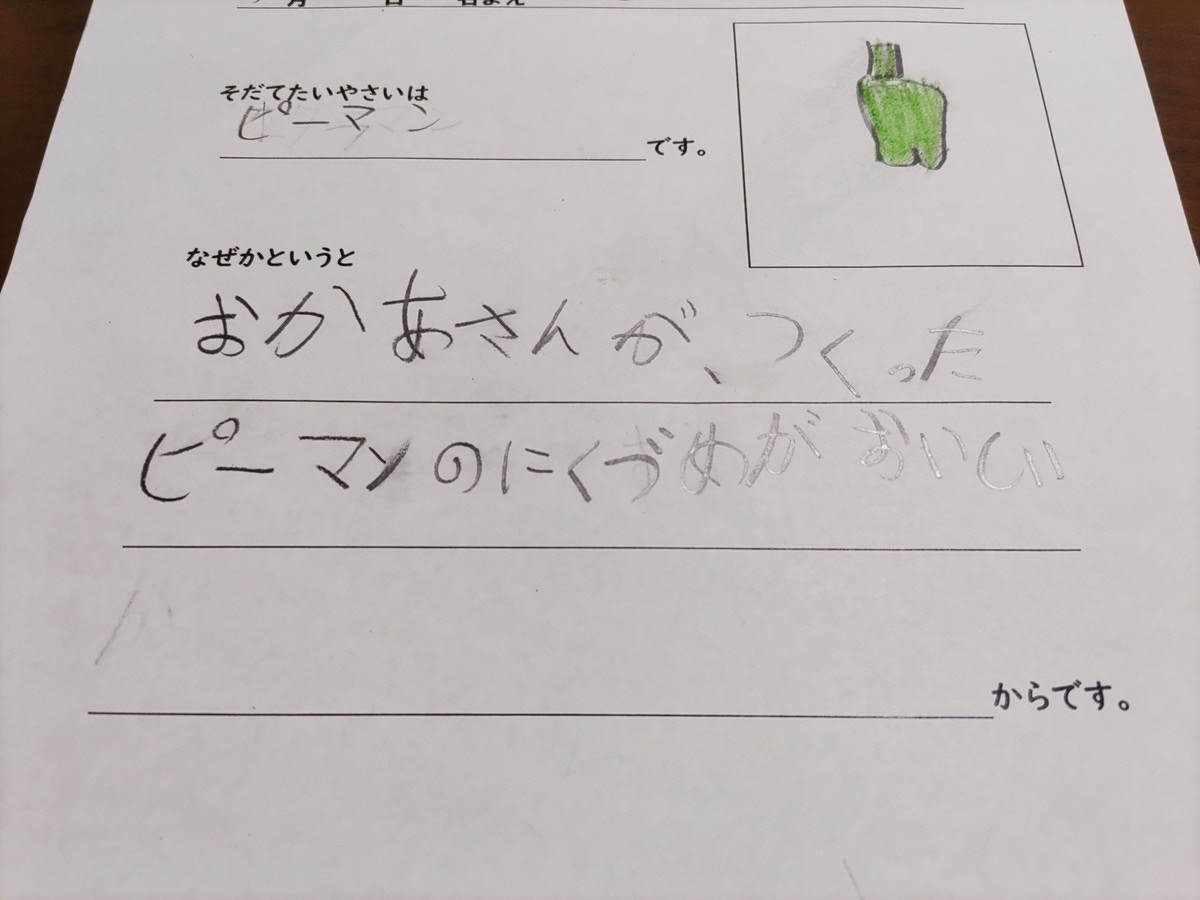 月 日 名まえ
そだてたいやさいは
ピーマン
です。
なぜかというと
おかあさんが、つくった
ピーマンのにくづめがおいしい
からです。